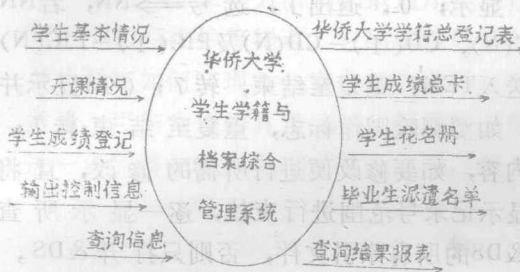 学生基本情况
开课情况
学生成绩登记
输出控制信息
查询信息
华侨大学
学生学籍与
档案综合
管理系统
华侨大学学籍总登记表
学生成绩总卡
学生花名册
毕业生派遣名单
查询结果报表